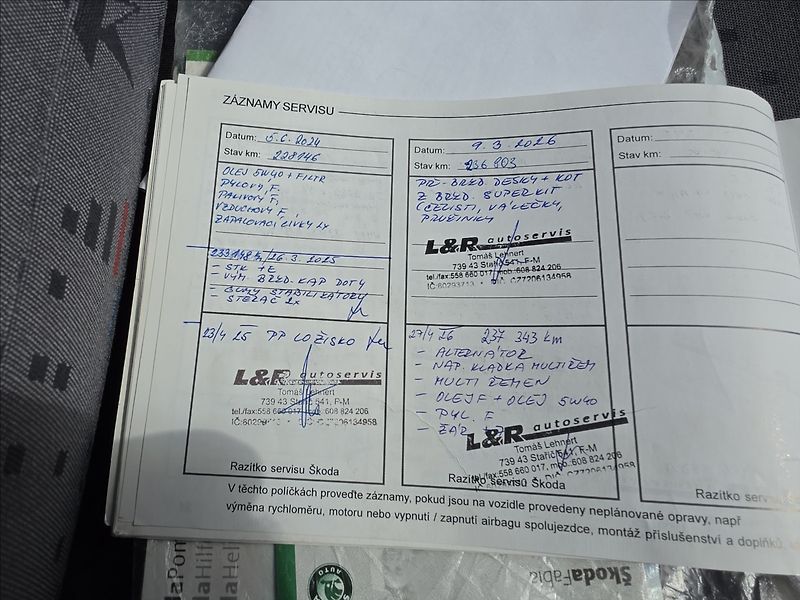 ZÁZNAMY SERVISU
Datum: 5.6.2024
Stav km: 228946
OLEJ 5W40 + FILTR
PYLOVÝ F.
PALIVOVÝ F,
VZDUCHOVÝ F,
ZAPALOVACÍ CÍVKY 2X
233148 km / 26.3.2025
- STK + E
- VÝM. BRZD. KAP. DOT4
- GUMY STABILIZÁTORU
- STĚRAČ 2X
23/4 25 PP LOŽISKO
L&R autoservis
Tomáš Lehnert
739 43 Staříč 541, F-M
tel./fax:558 660 017, mob.:608 824 206
Razítko servisu Škoda
Datum: 9.3.2026
Stav km: 236 903
PŘ. BRZD. DESKY + KOT
Z BRZD. SUPERKIT
(ČELISTI, VÁLEČKY,
PRUŽINKY
L&R autoservis
Tomáš Lehnert
739 43 Staříč 541, F-M
tel./fax:558 660 017, mob.:608 824 206
IČ:60293713 • DIČ: CZ7206134958
27/4 26 237 343 km
- ALTERNÁTOR
- NAP. KLADKA MULTIŘEM
- MULTI ŘEMEN
- OLEJ F + OLEJ 5W40
- PYL. F
L&R autoservis
Tomáš Lehnert
739 43 Staříč 541, F-M
tel./fax:558 660 017, mob.:608 824 206
Razítko servisu Škoda
Datum:
Stav km:
Razítko serv
V těchto políčkách proveďte záznamy, pokud jsou na vozidle provedeny neplánované opravy, např
výměna rychloměru, motoru nebo vypnutí / zapnutí airbagu spolujezdce, montáž příslušenství a doplňků
ŠkodaFabia
AUTO
daPom
daHilf
daHel